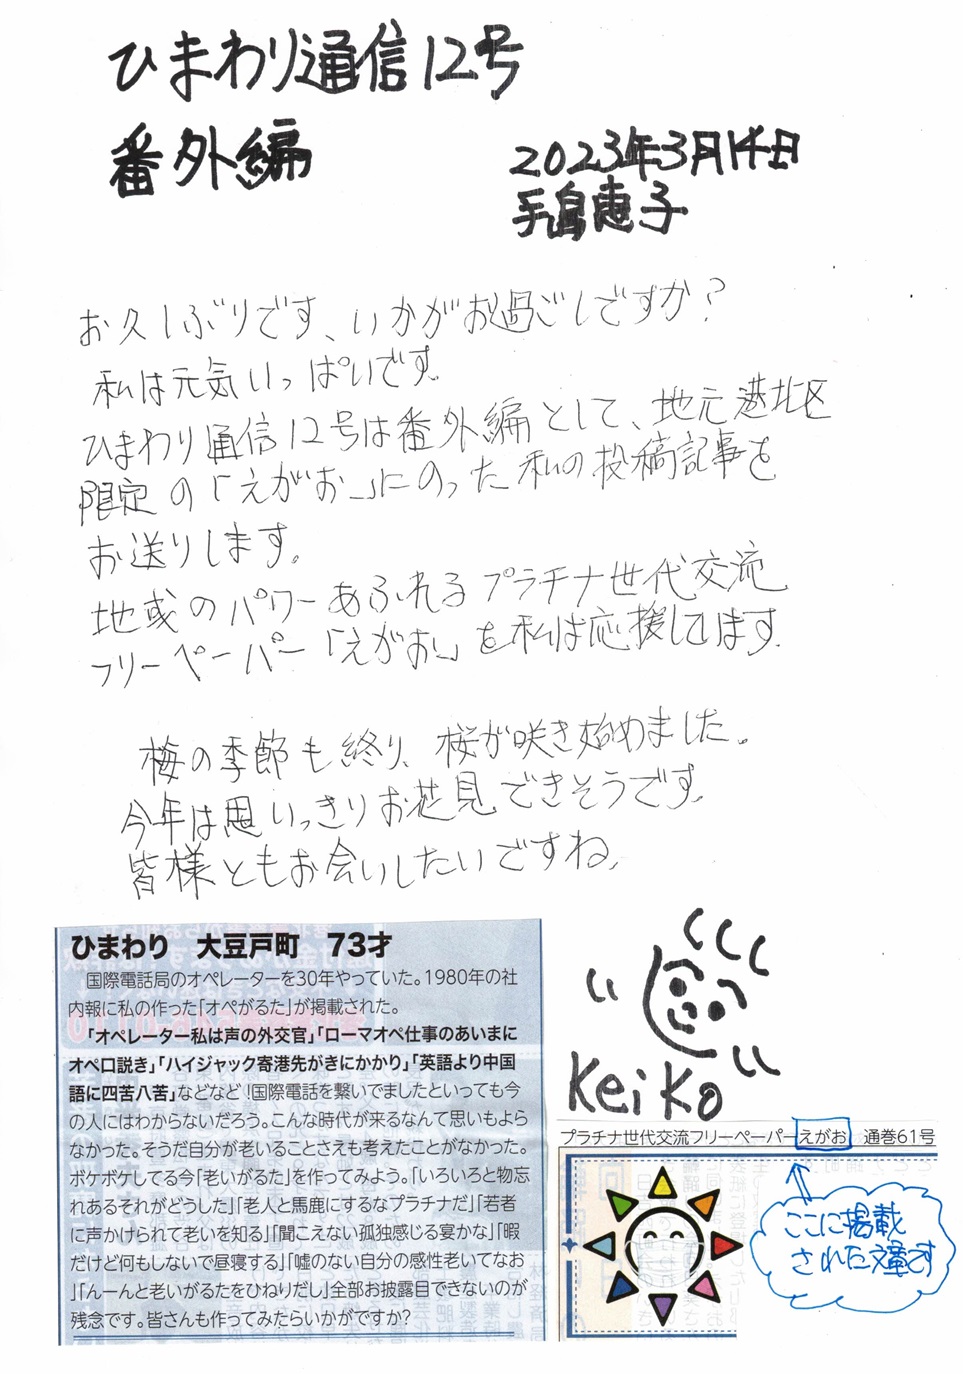 ひまわり通信12号
番外編
2023年3月14日
手島恵子
お久しぶりです、いかがお過ごしですか？
私は元気いっぱいです。
ひまわり通信12号は番外編として、地元港北区
限定の「えがお」にのった私の投稿記事を
お送りします。
地域のパワーあふれるプラチナ世代交流
フリーペーパー「えがお」を私は応援してます。
梅の季節も終り、桜が咲き始めました。
今年は思いっきりお花見できそうです。
皆様ともお会いしたいですね。
ひまわり　大豆戸町　73才
国際電話局のオペレーターを30年やっていた。1980年の社
内報に私の作った「オペがるた」が掲載された。
「オペレーター私は声の外交官」「ローマオペ仕事のあいまに
オペ口説き」「ハイジャック寄港先がきにかかり」「英語より中国
語に四苦八苦」などなど！国際電話を繋いでましたといっても今
の人にはわからないだろう。こんな時代が来るなんて思いもよら
なかった。そうだ自分が老いることさえも考えたことがなかった。
ボケボケしてる今「老いがるた」を作ってみよう。「いろいろと物忘
れあるそれがどうした」「老人と馬鹿にするなプラチナだ」「若者
に声かけられて老いを知る」「聞こえない孤独感じる宴かな」「暇
だけど何もしないで昼寝する」「嘘のない自分の感性老いてなお
」「んーんと老いがるたをひねりだし」全部お披露目できないのが
残念です。皆さんも作ってみたらいかがですか？
Keiko
プラチナ世代交流フリーペーパーえがお　通巻61号
ここに掲載
された文章です